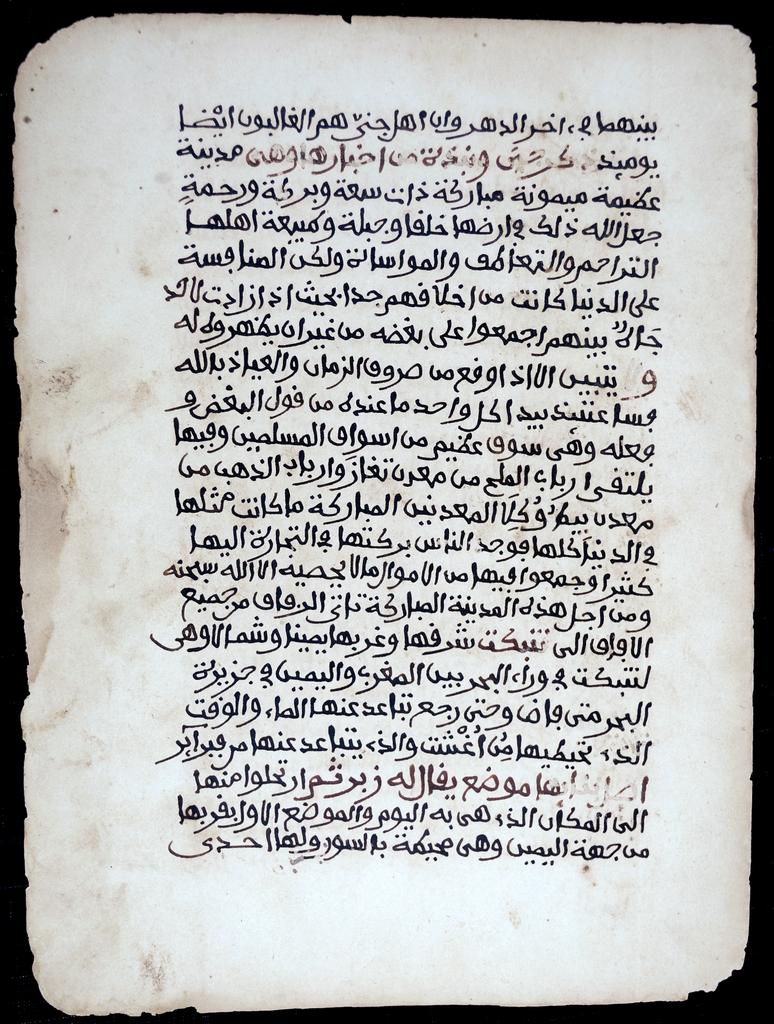 بينهما في ءاخر الدهر وان اهل جنى هم الغالبون ايضا
يوميذ ذكر جنى ونبذة من اخبارها وهى مدينة
عظيمة ميمونة مباركة ذات سعة وبركة ورحمة
جعل الله ذلك في ارضها خلقا وجبلة وطبيعة اهلها
التراحم والتعاطف والمواساة ولكن المنافسة
على الدنيا كانت من اخلاقهم جدا بحيث اذا زادت لاحد
جاه بينهم اجمعوا على بغضه من غير ان يظهروه له
ولا يتبين الا اذا وقع من صروف الزمان والعياذ بالله
فساعتئذ يبدا كل واحد ما عنده من قول البغض و
فعله وهى سوق عظيم من اسواق المسلمين وفيها
يلتقى ارباب الملح من معدن تغاز وارباب الذهب من
معدن بيط وكلا المعدنين المباركة ما كانت مثلها
في الدنيا كلها فوجد الناس بركتها في التجارة اليها
كثيرا وجمعوا فيها من الاموال ما لا يحصيه الا الله سبحنه
ومن اجل هذه المدينة المباركة تاتى الرفاق من جميع
الافاق الى تنبكت شرقها وغربها يمينا وشمالا وهى
لتنبكت في وراء البحر بين المغرب واليمين في جزيرة
البحر متى فاض وحتى رجع تباعد عنها الماء والوقت
الذى تحيط بها من اغشت والذى يتباعد عنها من فبراير
موضع يقال له زبر ثم ارتحلوا منها
الى المكان الذى هى به اليوم والموضع الاول بقربها
من جهة اليمين وهى محيطة بالسور ولها احدى